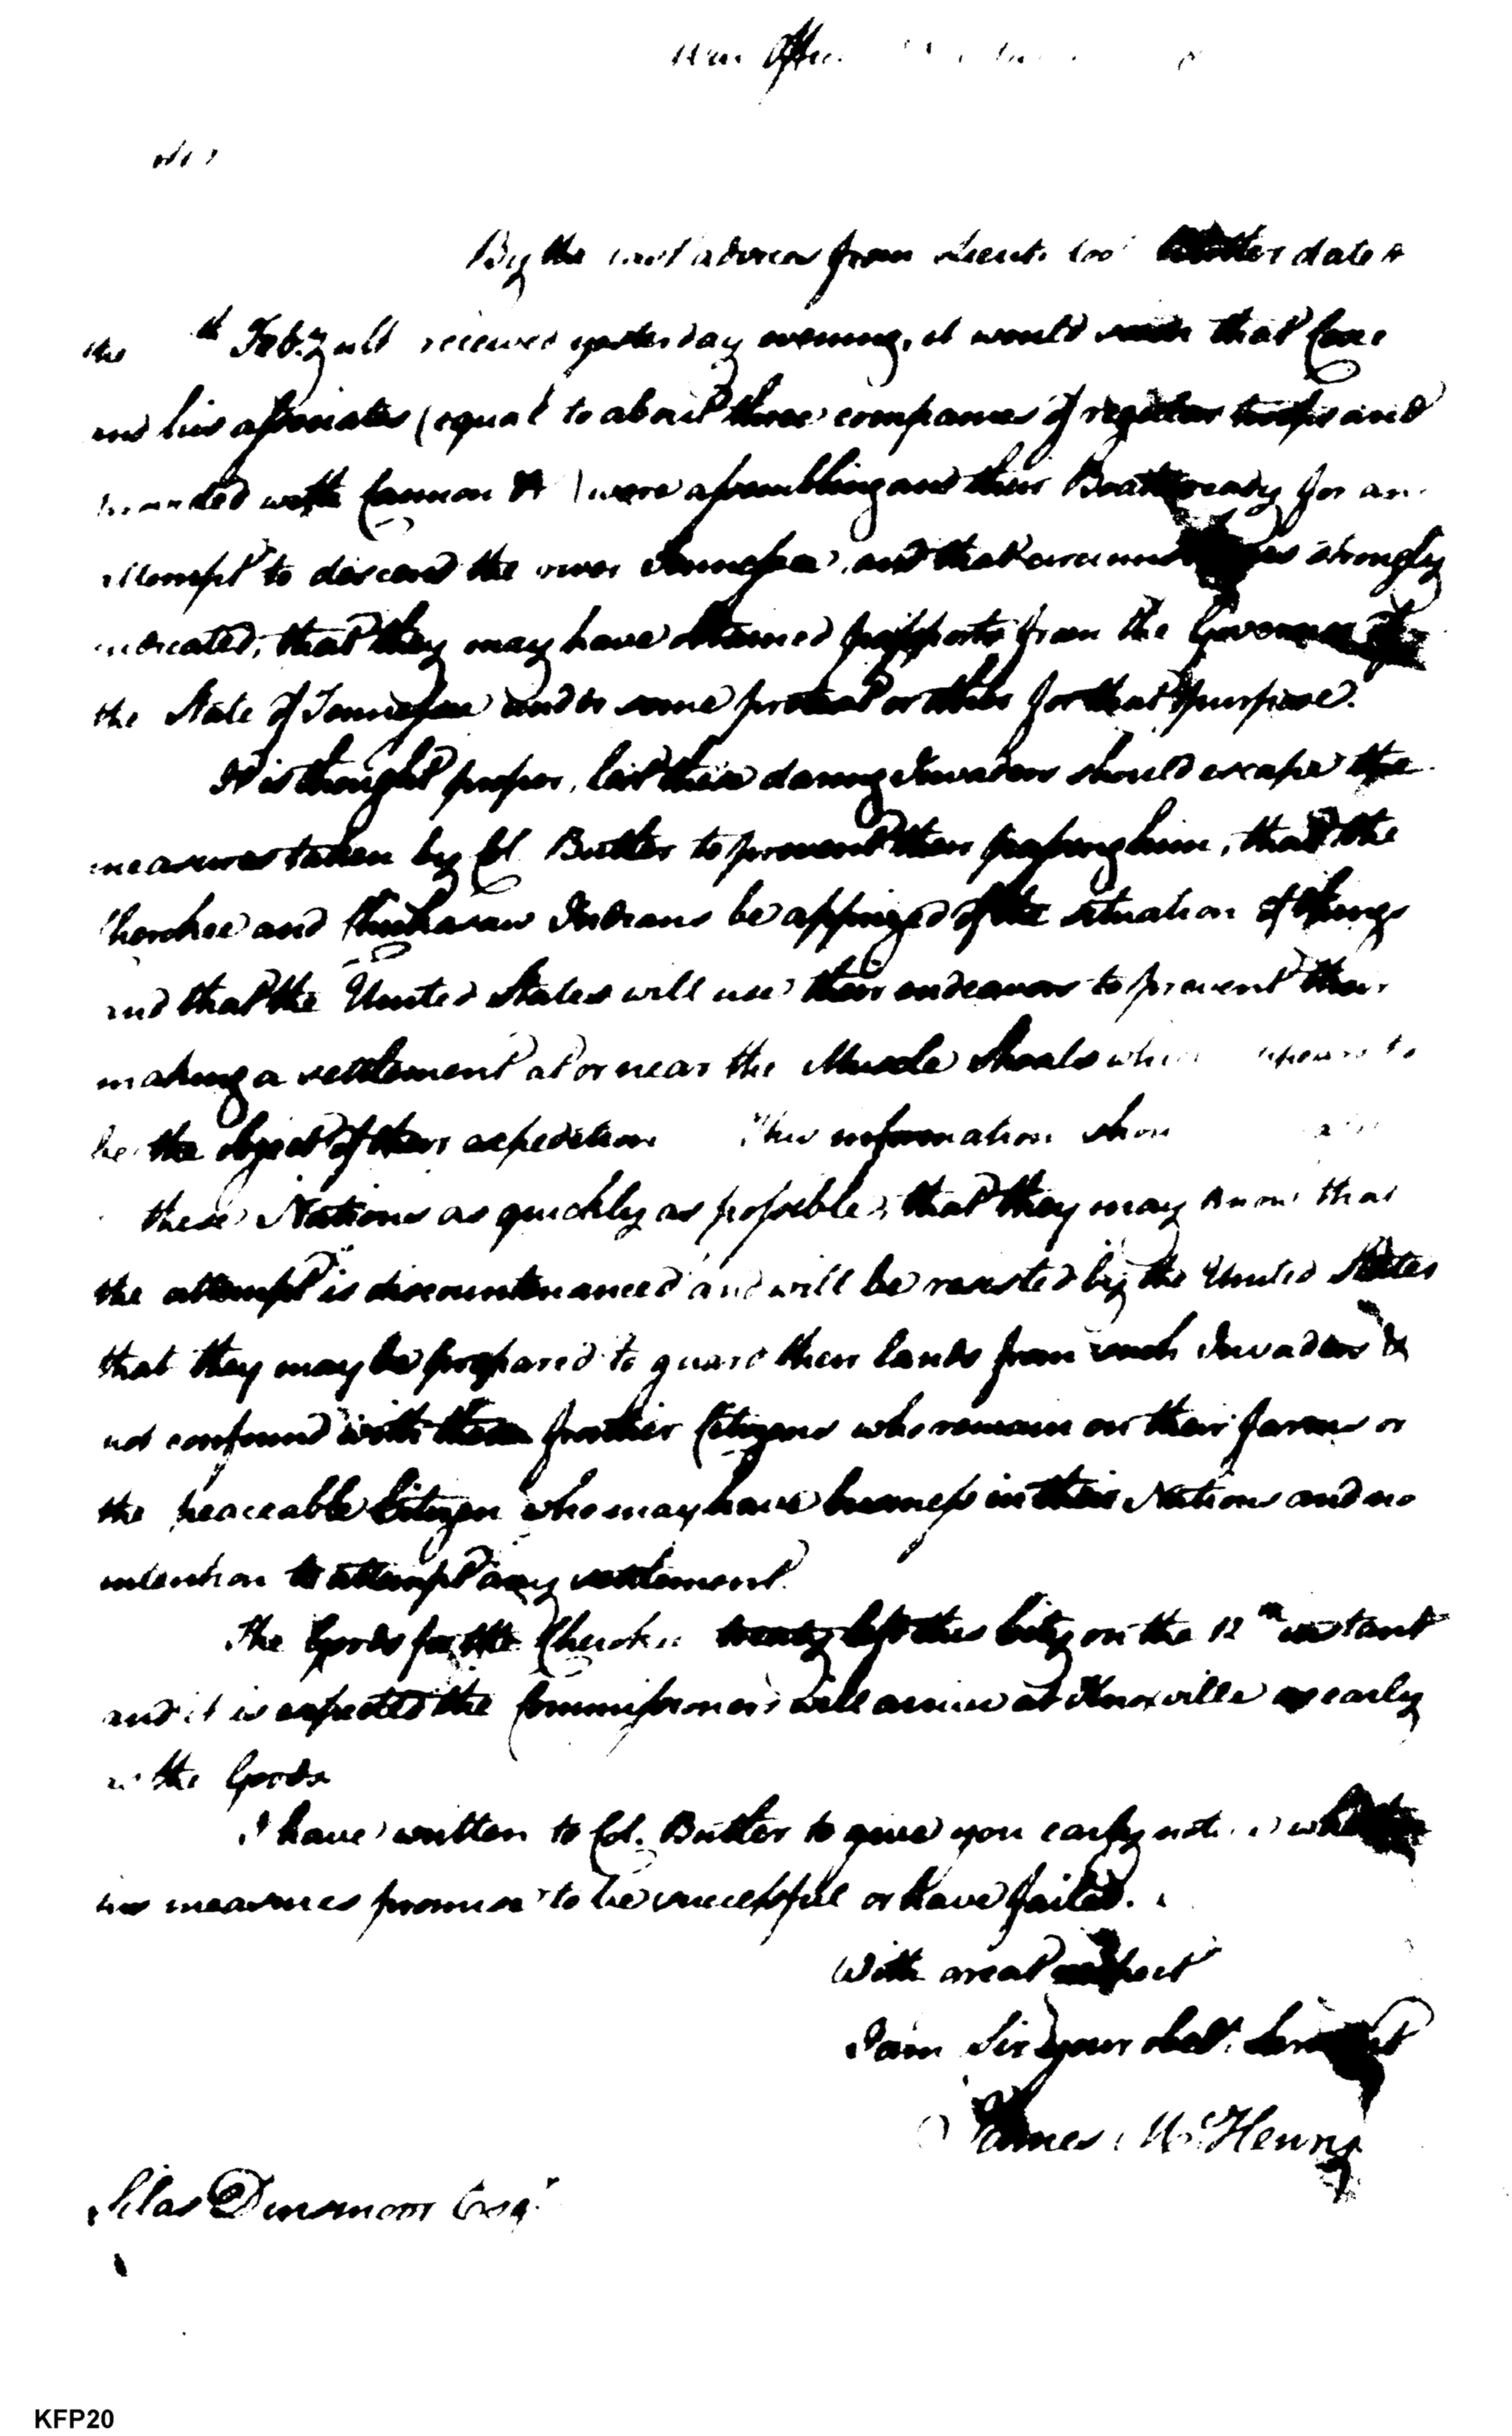 War Office
Sir
By the last advices from Lieut. Col Butler dated
the th Feby. ult received yesterday evening, it would seem that Coxe
and his associates (equal to about three companies of regular troops and
provided with Cannon &) were assembling and their Boats ready for an
attempt to descend the river Tennessee, and that circumstances strongly
indicated, that they may have obtained passports from the Governor of
the State of Tennessee under some pretext or other for that purpose.
It is thought proper, lest these daring Invaders should escape the
measures taken by Col. Butler to prevent their passing him, that the
Cherokee and Chickasaw Indians be apprized of the situation of things
and that the United States will use their endeavors to prevent their
making a settlement at or near the Muscle Shoals which appears to
be the object of their expedition This information
these Nations as quickly as possible, that they may know that
the attempt is discountenanced and will be resisted by the United States
that they may be prepared to guard their lands from such Invaders &
not confound with them frontier Citizens who remain on their farms or
the peaceable Citizen who may have business in their Nations and no
intention to attempt any settlement.
The Goods for the Cherokee treaty left this City on the 12th instant
and it is expected the Commissioners will arrive at Knoxville as early
as the Goods
I have written to Col. Butler to give you early notice whether
his measures promise to be successful or have failed.
With great respect
I am Sir your obet. Servant
James McHenry
Silas Dinsmoor Esqr.
KFP20